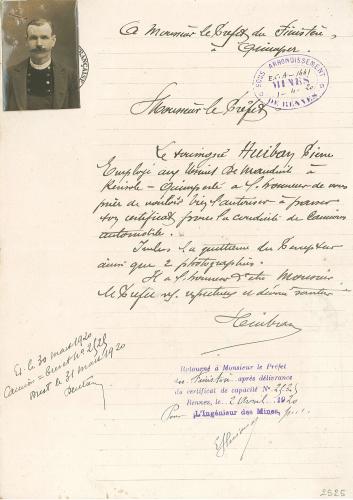 A Monsieur le Préfet du Finistère,
à Quimper
SOUS-ARRONDISSEMENT
MINES
DE RENNES
Monsieur le Préfet
Le soussigné Huiban Pierre
Employé aux Usines De Mauduit à
Quimperlé a l'honneur de vous
prier de vouloir bien l'autoriser à passer
son certificat pour la conduite de camions
automobile.
Inclus la quittance du Percepteur
ainsi que 2 photographies.
Il a l'honneur d'être Monsieur
le Préfet
Huiban
30 mars 1920
Camion = Brevet No 2525
Brest le 31 mars 1920
Retourné à Monsieur le Préfet
du Finistère après délivrance
du certificat de capacité No 2525
Rennes, le 2 Avril 1920
Pour L'Ingénieur des Mines,
2525